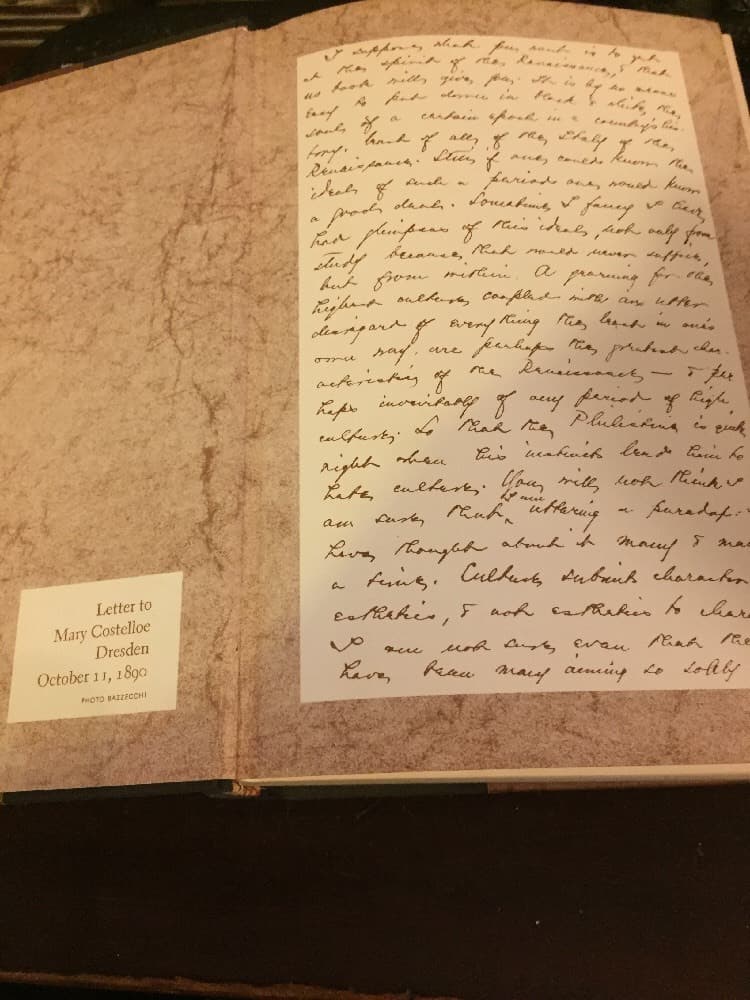 Letter to
Mary Costelloe
Dresden
October 11, 1890
PHOTO BAZZECHI
I suppose what you want is to get
at the spirit of the Renaissance, & that
no book will give you. It is by no means
easy to put down in black & white the
souls of a certain epoch in a country's his-
tory, least of all of the Italy of the
Renaissance. Still if one could know the
ideals of such a period one would know
a good deal. Sometimes I fancy I have
had glimpses of this ideal, not only from
study because that would never suffice,
but from within. A yearning for the
highest culture coupled with an utter
disregard of everything the least in one's
own way, are perhaps the greatest char-
acteristics of the Renaissance — & per
haps inevitably of any period of high
culture. So that the Philistine is quite
right when his instincts lead him to
hate culture. You will not think I
am sure that I am uttering a paradox:
have thought about it many &
a time. Culture submits character
esthetics, & not esthetics to
I am not sure even that
have been many aiming so solely